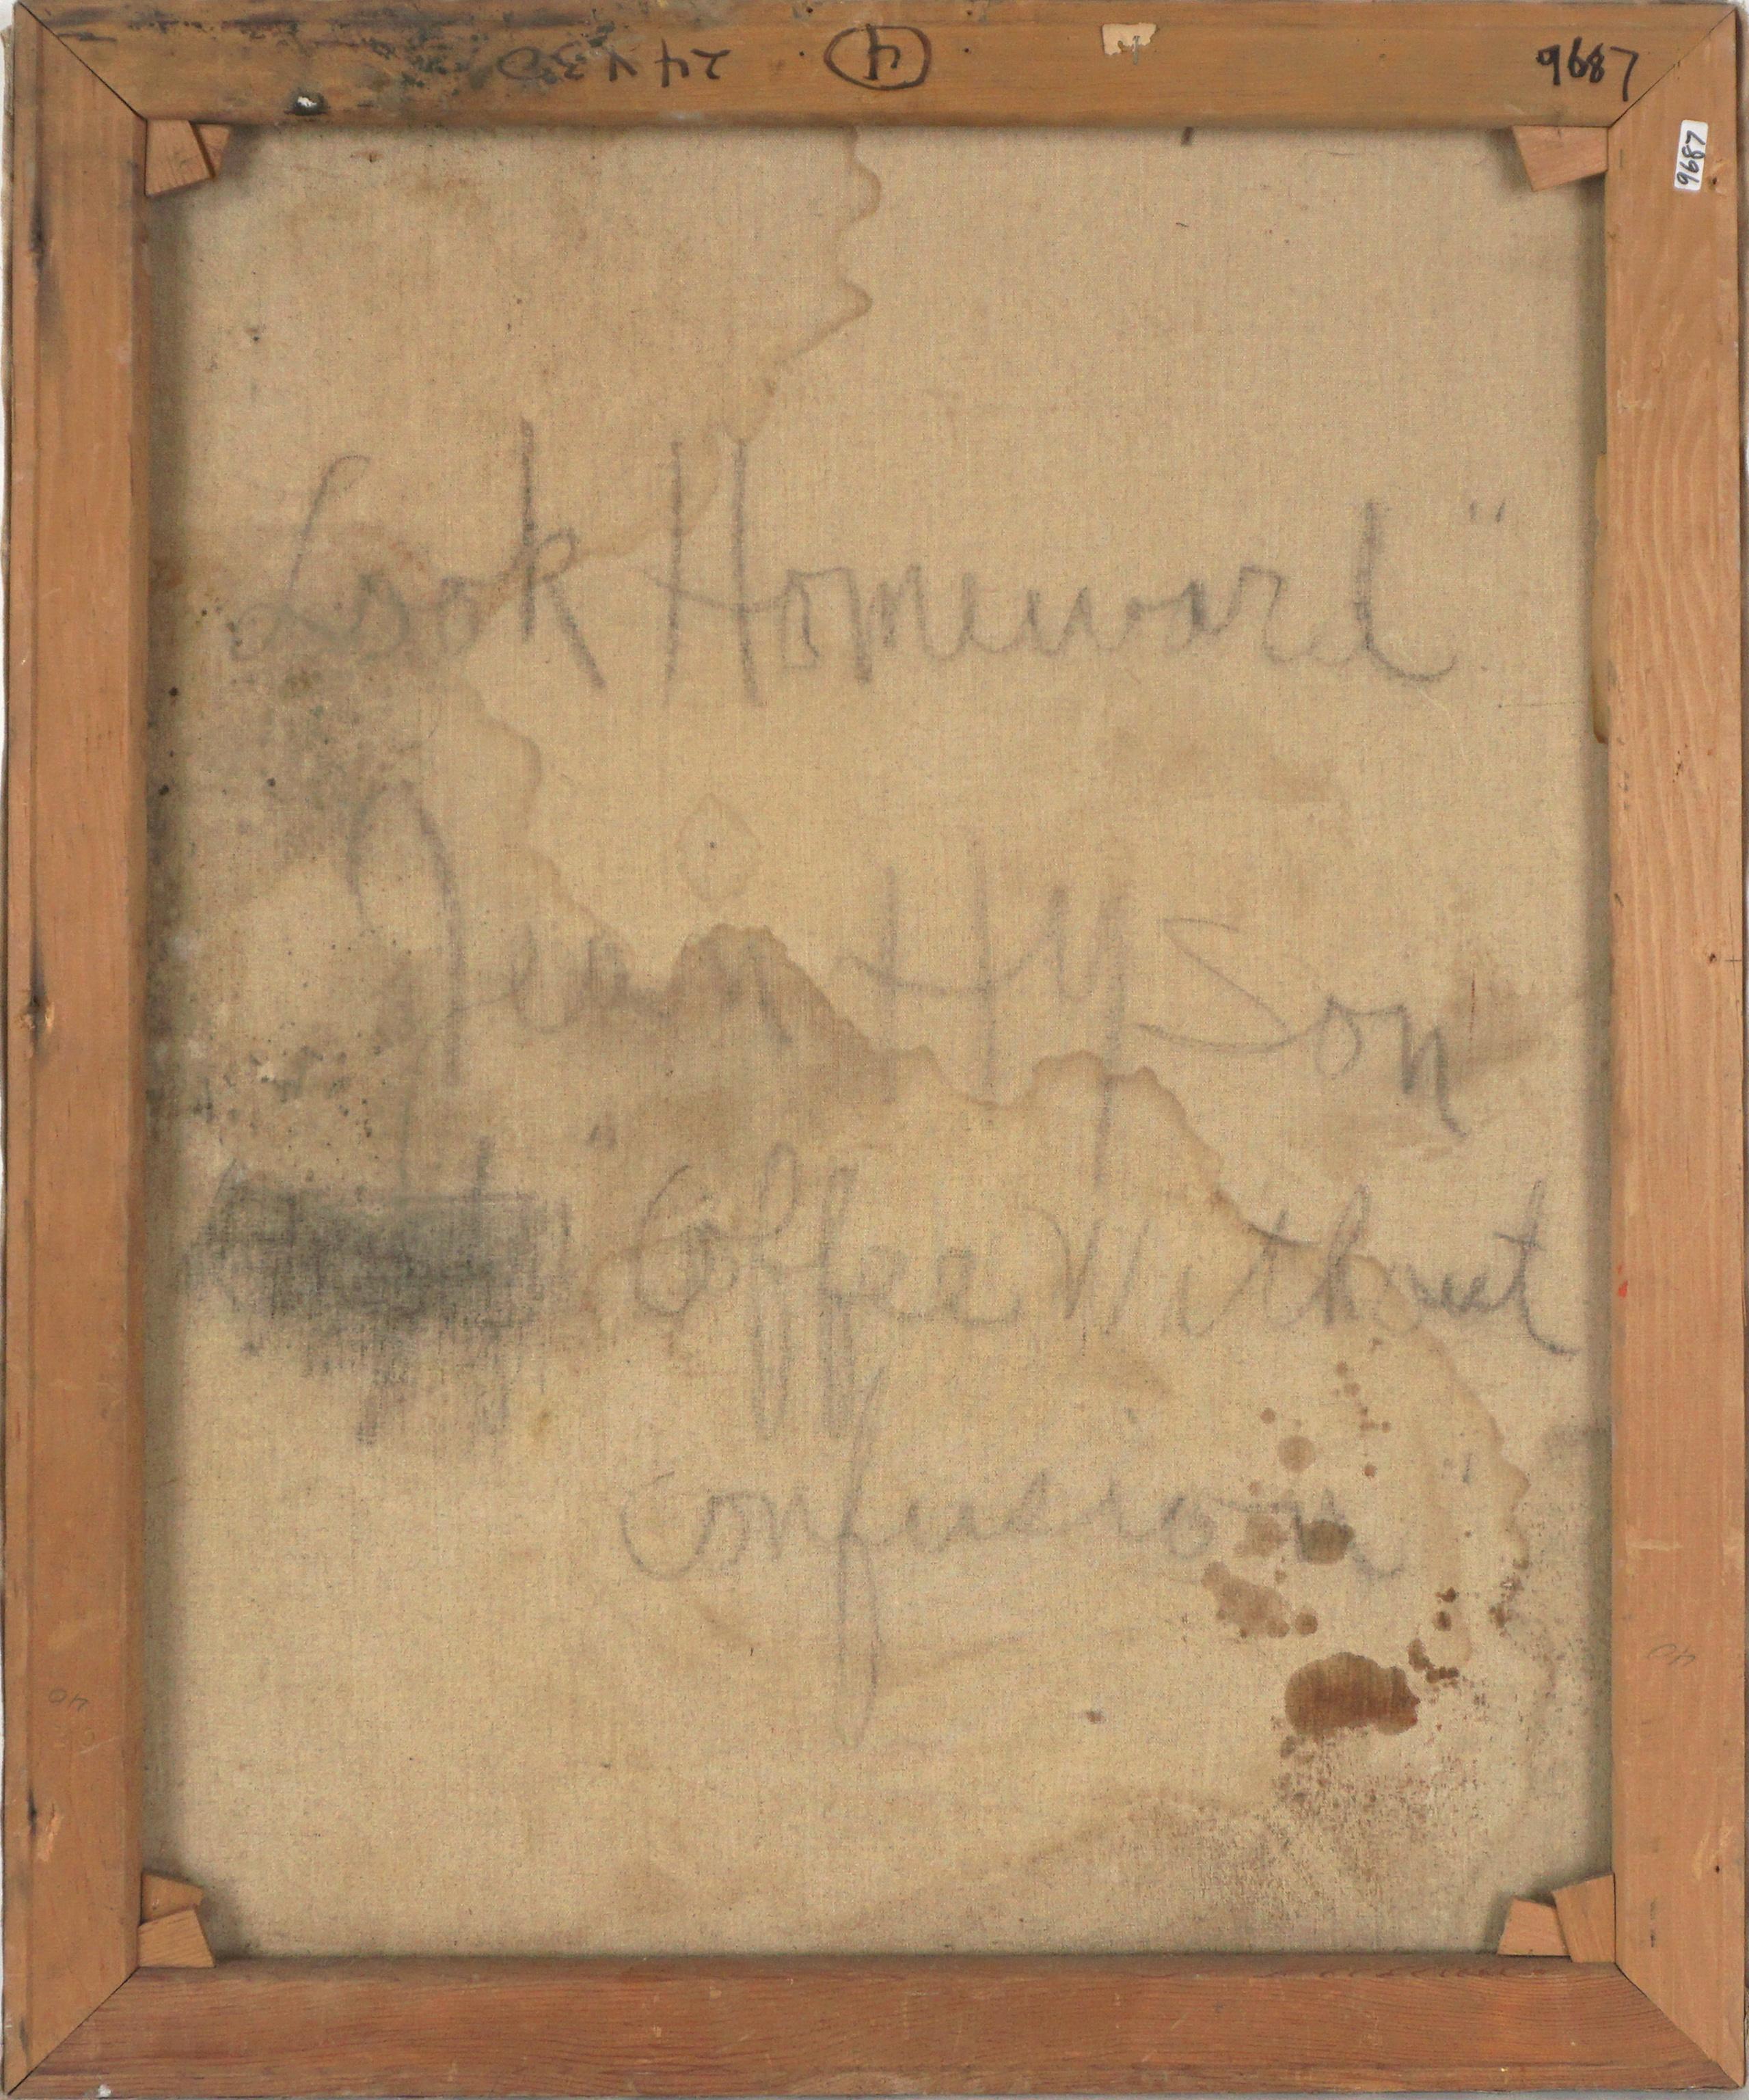 24 x 30 4 9687
9687
Look Homeward"
Jean Hyson
"Coffee Without
Confusion"
40
40